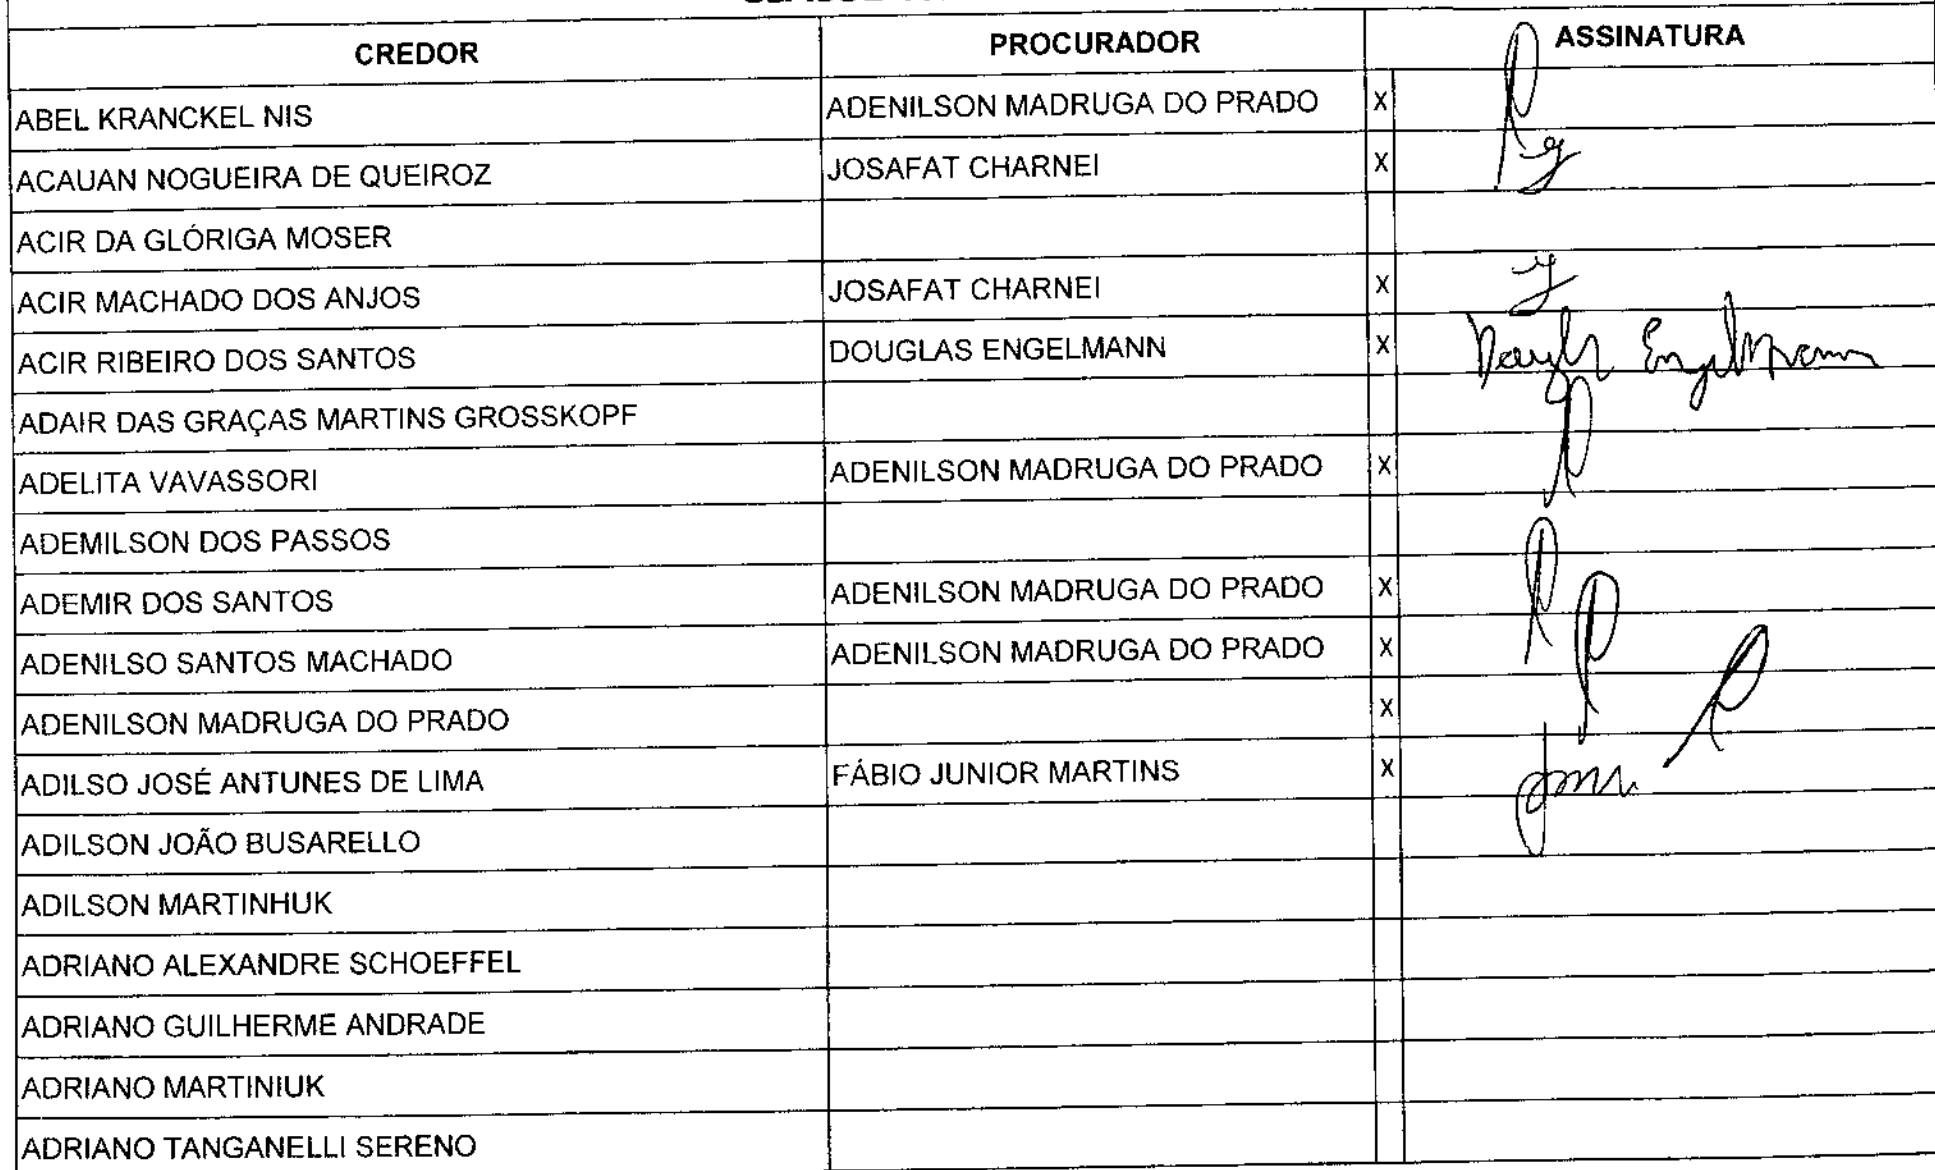 CREDOR PROCURADOR ASSINATURA
ABEL KRANCKEL NIS ADENILSON MADRUGA DO PRADO X
ACAUAN NOGUEIRA DE QUEIROZ JOSAFAT CHARNEI X
ACIR DA GLÓRIGA MOSER
ACIR MACHADO DOS ANJOS JOSAFAT CHARNEI X
ACIR RIBEIRO DOS SANTOS DOUGLAS ENGELMANN X Douglas Engelmann
ADAIR DAS GRAÇAS MARTINS GROSSKOPF
ADELITA VAVASSORI ADENILSON MADRUGA DO PRADO X
ADEMILSON DOS PASSOS
ADEMIR DOS SANTOS ADENILSON MADRUGA DO PRADO X
ADENILSO SANTOS MACHADO ADENILSON MADRUGA DO PRADO X
ADENILSON MADRUGA DO PRADO X
ADILSO JOSÉ ANTUNES DE LIMA FÁBIO JUNIOR MARTINS X
ADILSON JOÃO BUSARELLO
ADILSON MARTINHUK
ADRIANO ALEXANDRE SCHOEFFEL
ADRIANO GUILHERME ANDRADE
ADRIANO MARTINIUK
ADRIANO TANGANELLI SERENO